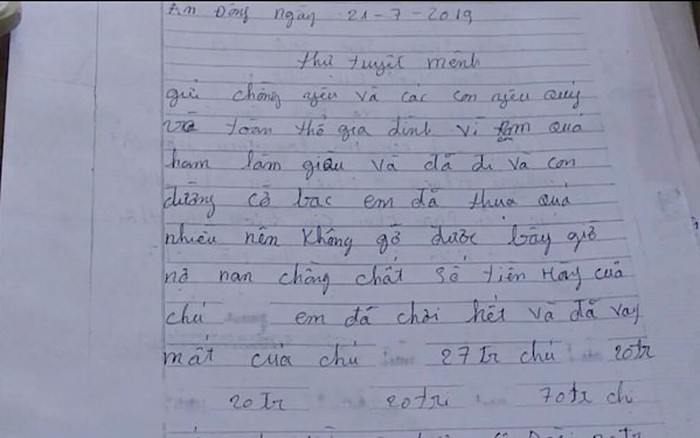 An Đông ngày 21-7-2019
thư tuyệt mệnh
gửi chồng yêu và các con yêu quý
và toàn thể gia đình vì em quá
ham làm giầu và đã đi và con
đường cờ bạc em đã thua quá
nhiều nên không gỡ được bây giờ
nợ nan chồng chất số tiền Hảy của
chú em đã chơi hết và đã vay
mất của chú 27 tr chú 20tr
20 tr 20 tr 70tr ch